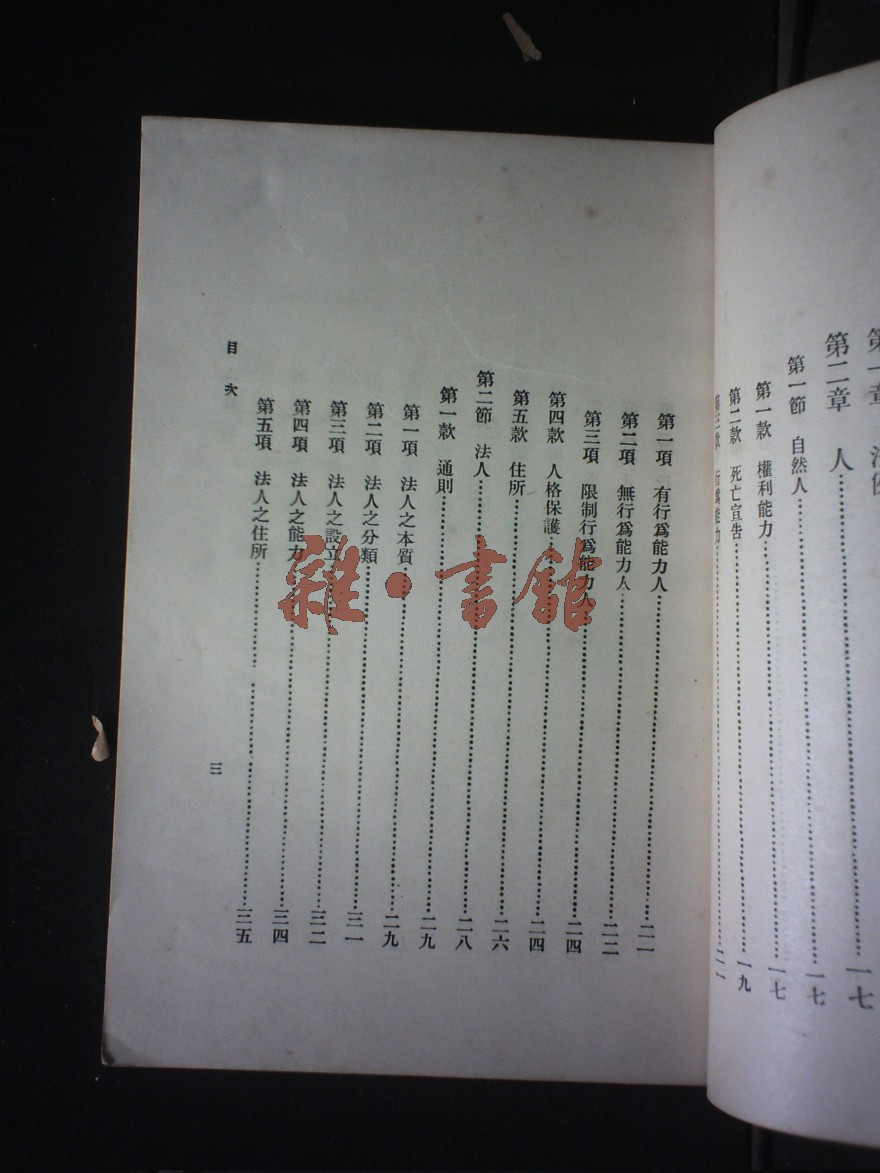 第一章 法例
第二章 人……………一七
第一節 自然人……………一七
第一款 權利能力……………一七
第二款 死亡宣告……………一九
第三款 行爲能力……………二一
第一項 有行爲能力人……………二一
第二項 無行爲能力人……………二二
第三項 限制行爲能力人……………二四
第四款 人格保護……………二四
第五款 住所……………二六
第二節 法人……………二八
第一款 通則……………二九
第一項 法人之本質……………二九
第二項 法人之分類……………三一
第三項 法人之設立……………三二
第四項 法人之能力……………三四
第五項 法人之住所……………三五
目次
三
雜·書館